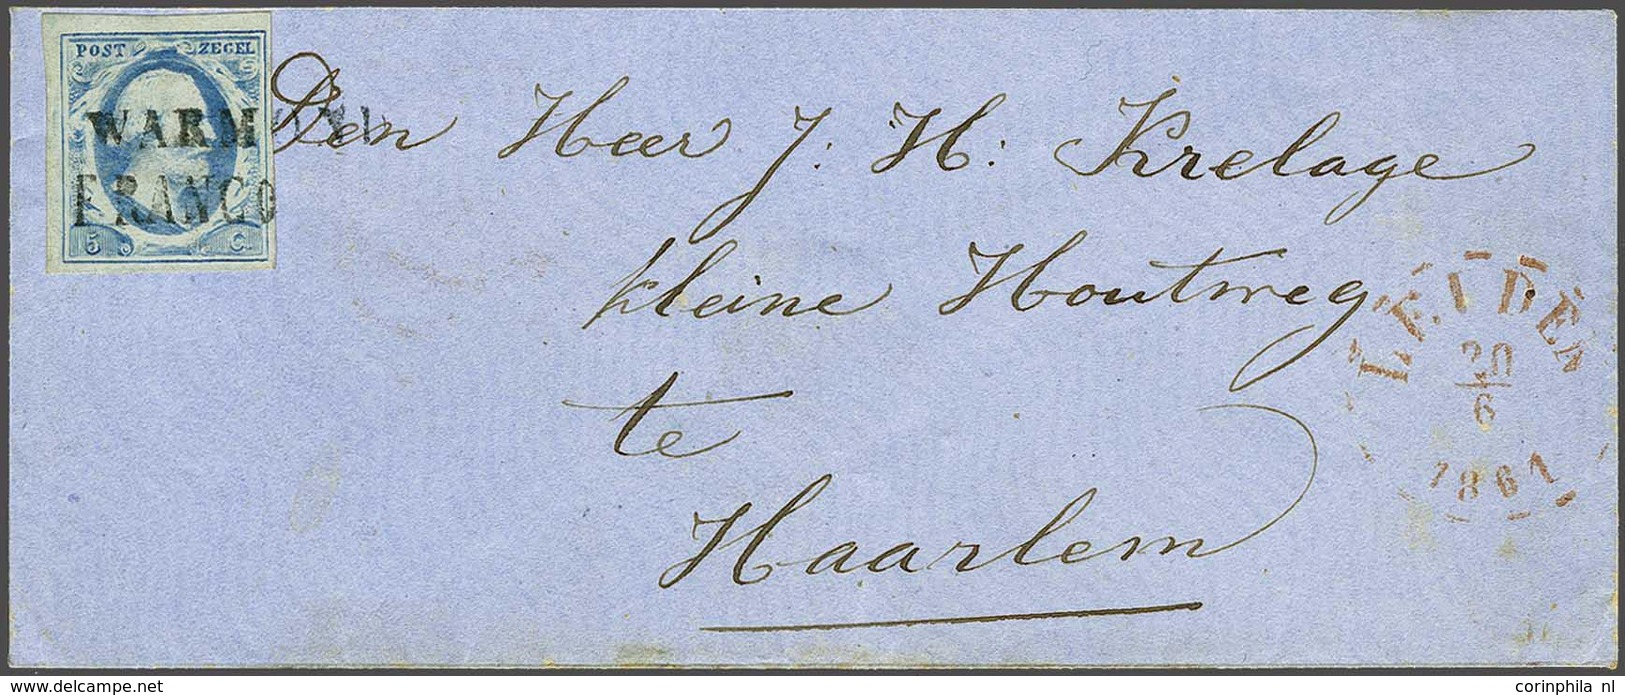 POST ZEGEL
WARMOND
FRANCO
5 C.
Den Heer J: H: Krelage
kleine Houtweg
te
Haarlem
LEIDEN
20
6
1861
© www.delcampe.net
corinphila_nl